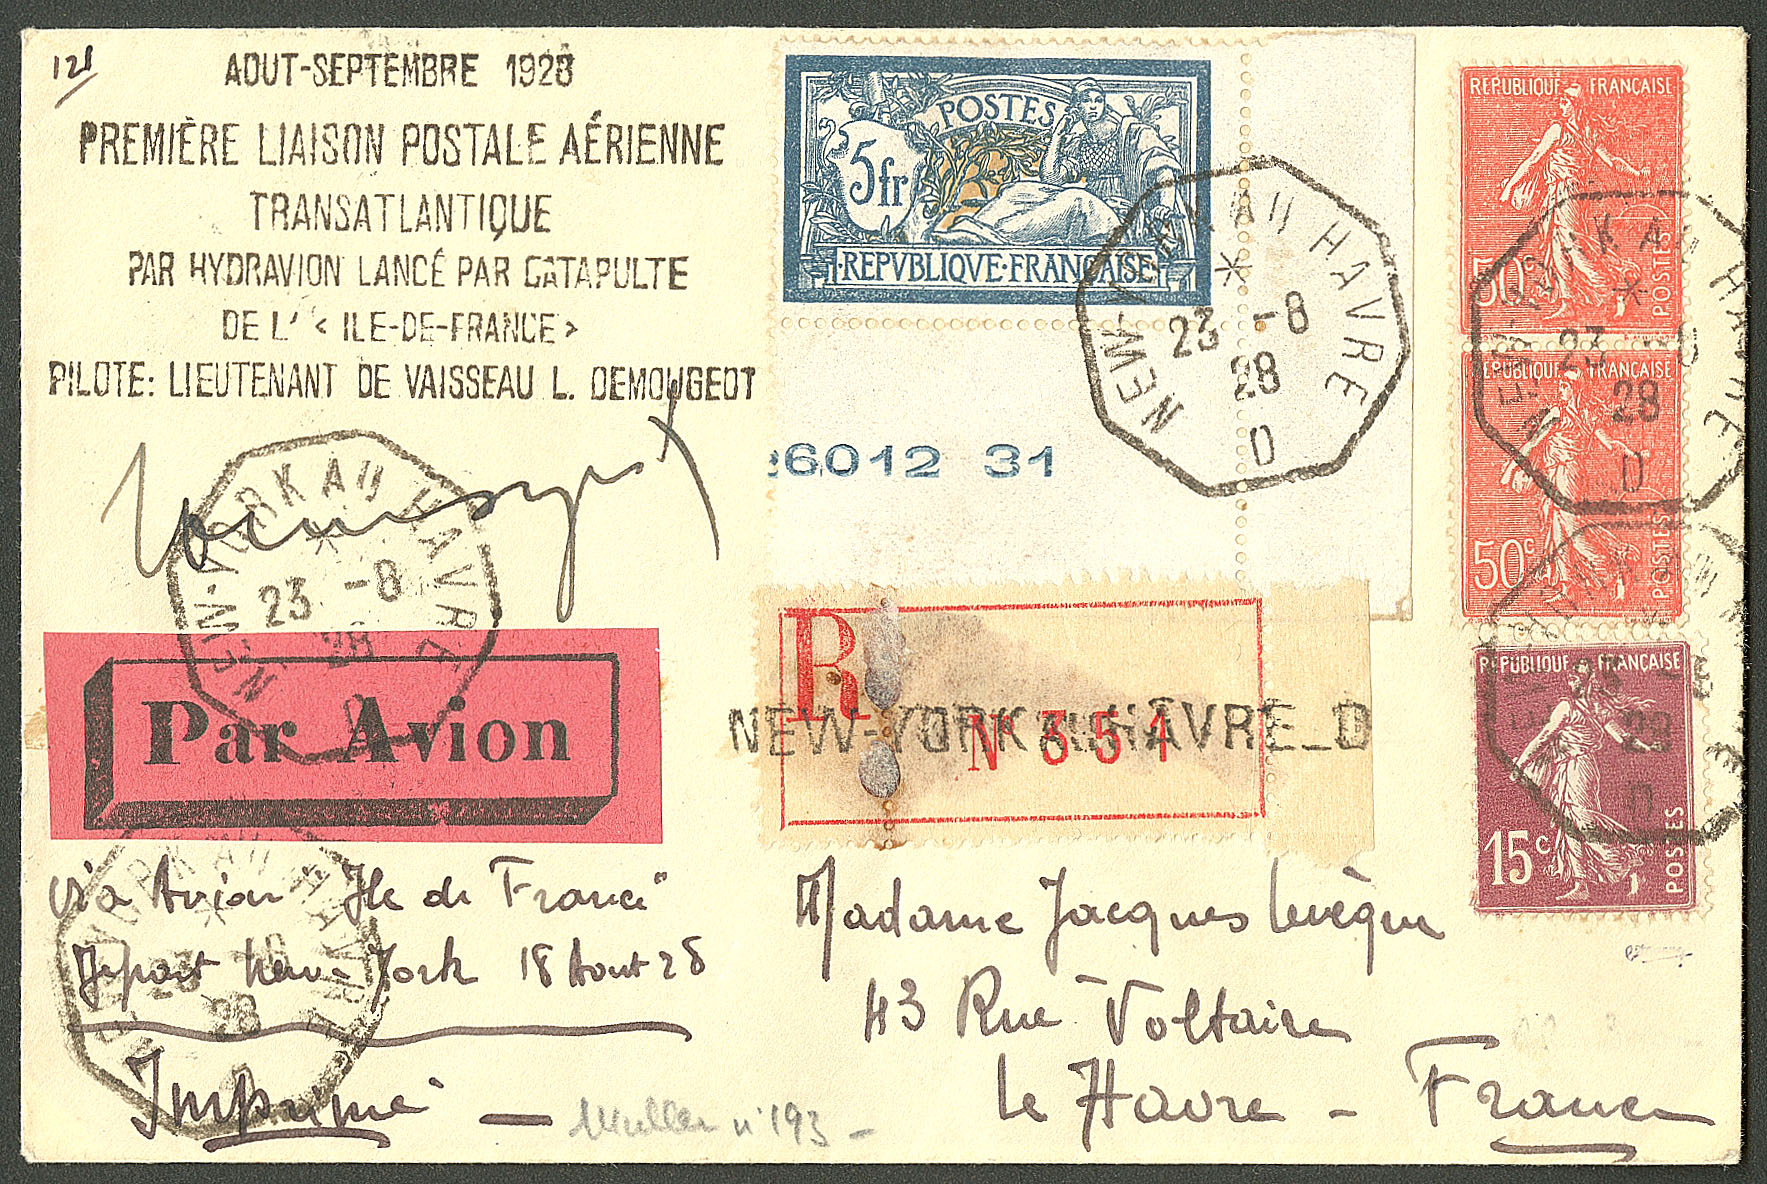 121
AOUT-SEPTEMBRE 1928
PREMIÈRE LIAISON POSTALE AÉRIENNE
TRANSATLANTIQUE
PAR HYDRAVION LANCÉ PAR CATAPULTE
DE L' < ILE-DE-FRANCE >
PILOTE: LIEUTENANT DE VAISSEAU L. DEMOUGEOT
POSTES
5fr
REPVBLIQVE·FRANÇAISE
NEW-YORK AU HAVRE
23 -8
28
D
6012 31
REPUBLIQUE FRANÇAISE
50c
POSTES
NEW-YORK AU HAVRE
23 -8
28
D
REPUBLIQUE FRANÇAISE
50c
POSTES
REPUBLIQUE FRANÇAISE
15c
POSTES
28
D
NEW-YORK AU HAVRE
23 -8
28
D
Par Avion
R
N° 351
NEW-YORK AU HAVRE_D
NEW-YORK AU HAVRE
23 -8
28
D
via Avion "Ile de France"
Départ New-York 18 Aout 28
Imprimé —
Madame Jacques Levèque
43 Rue Voltaire
Le Havre - France
Muller n° 193 -